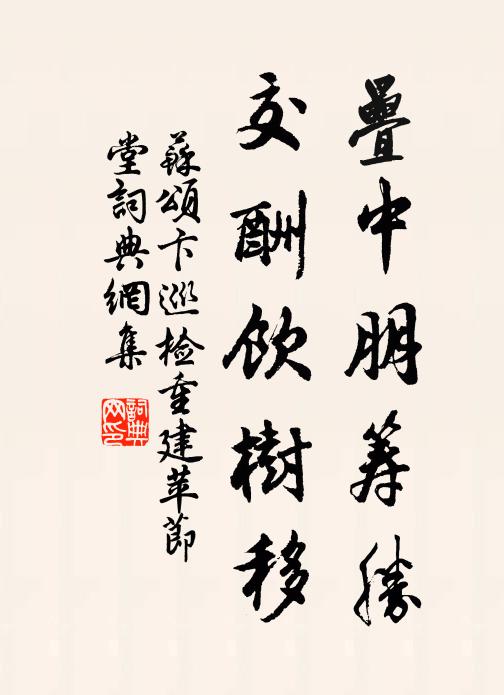 疊中朋筭勝
交酬飲樹移
蘇頌卞巡檢重建莘節
堂詞典網集
詞典网印